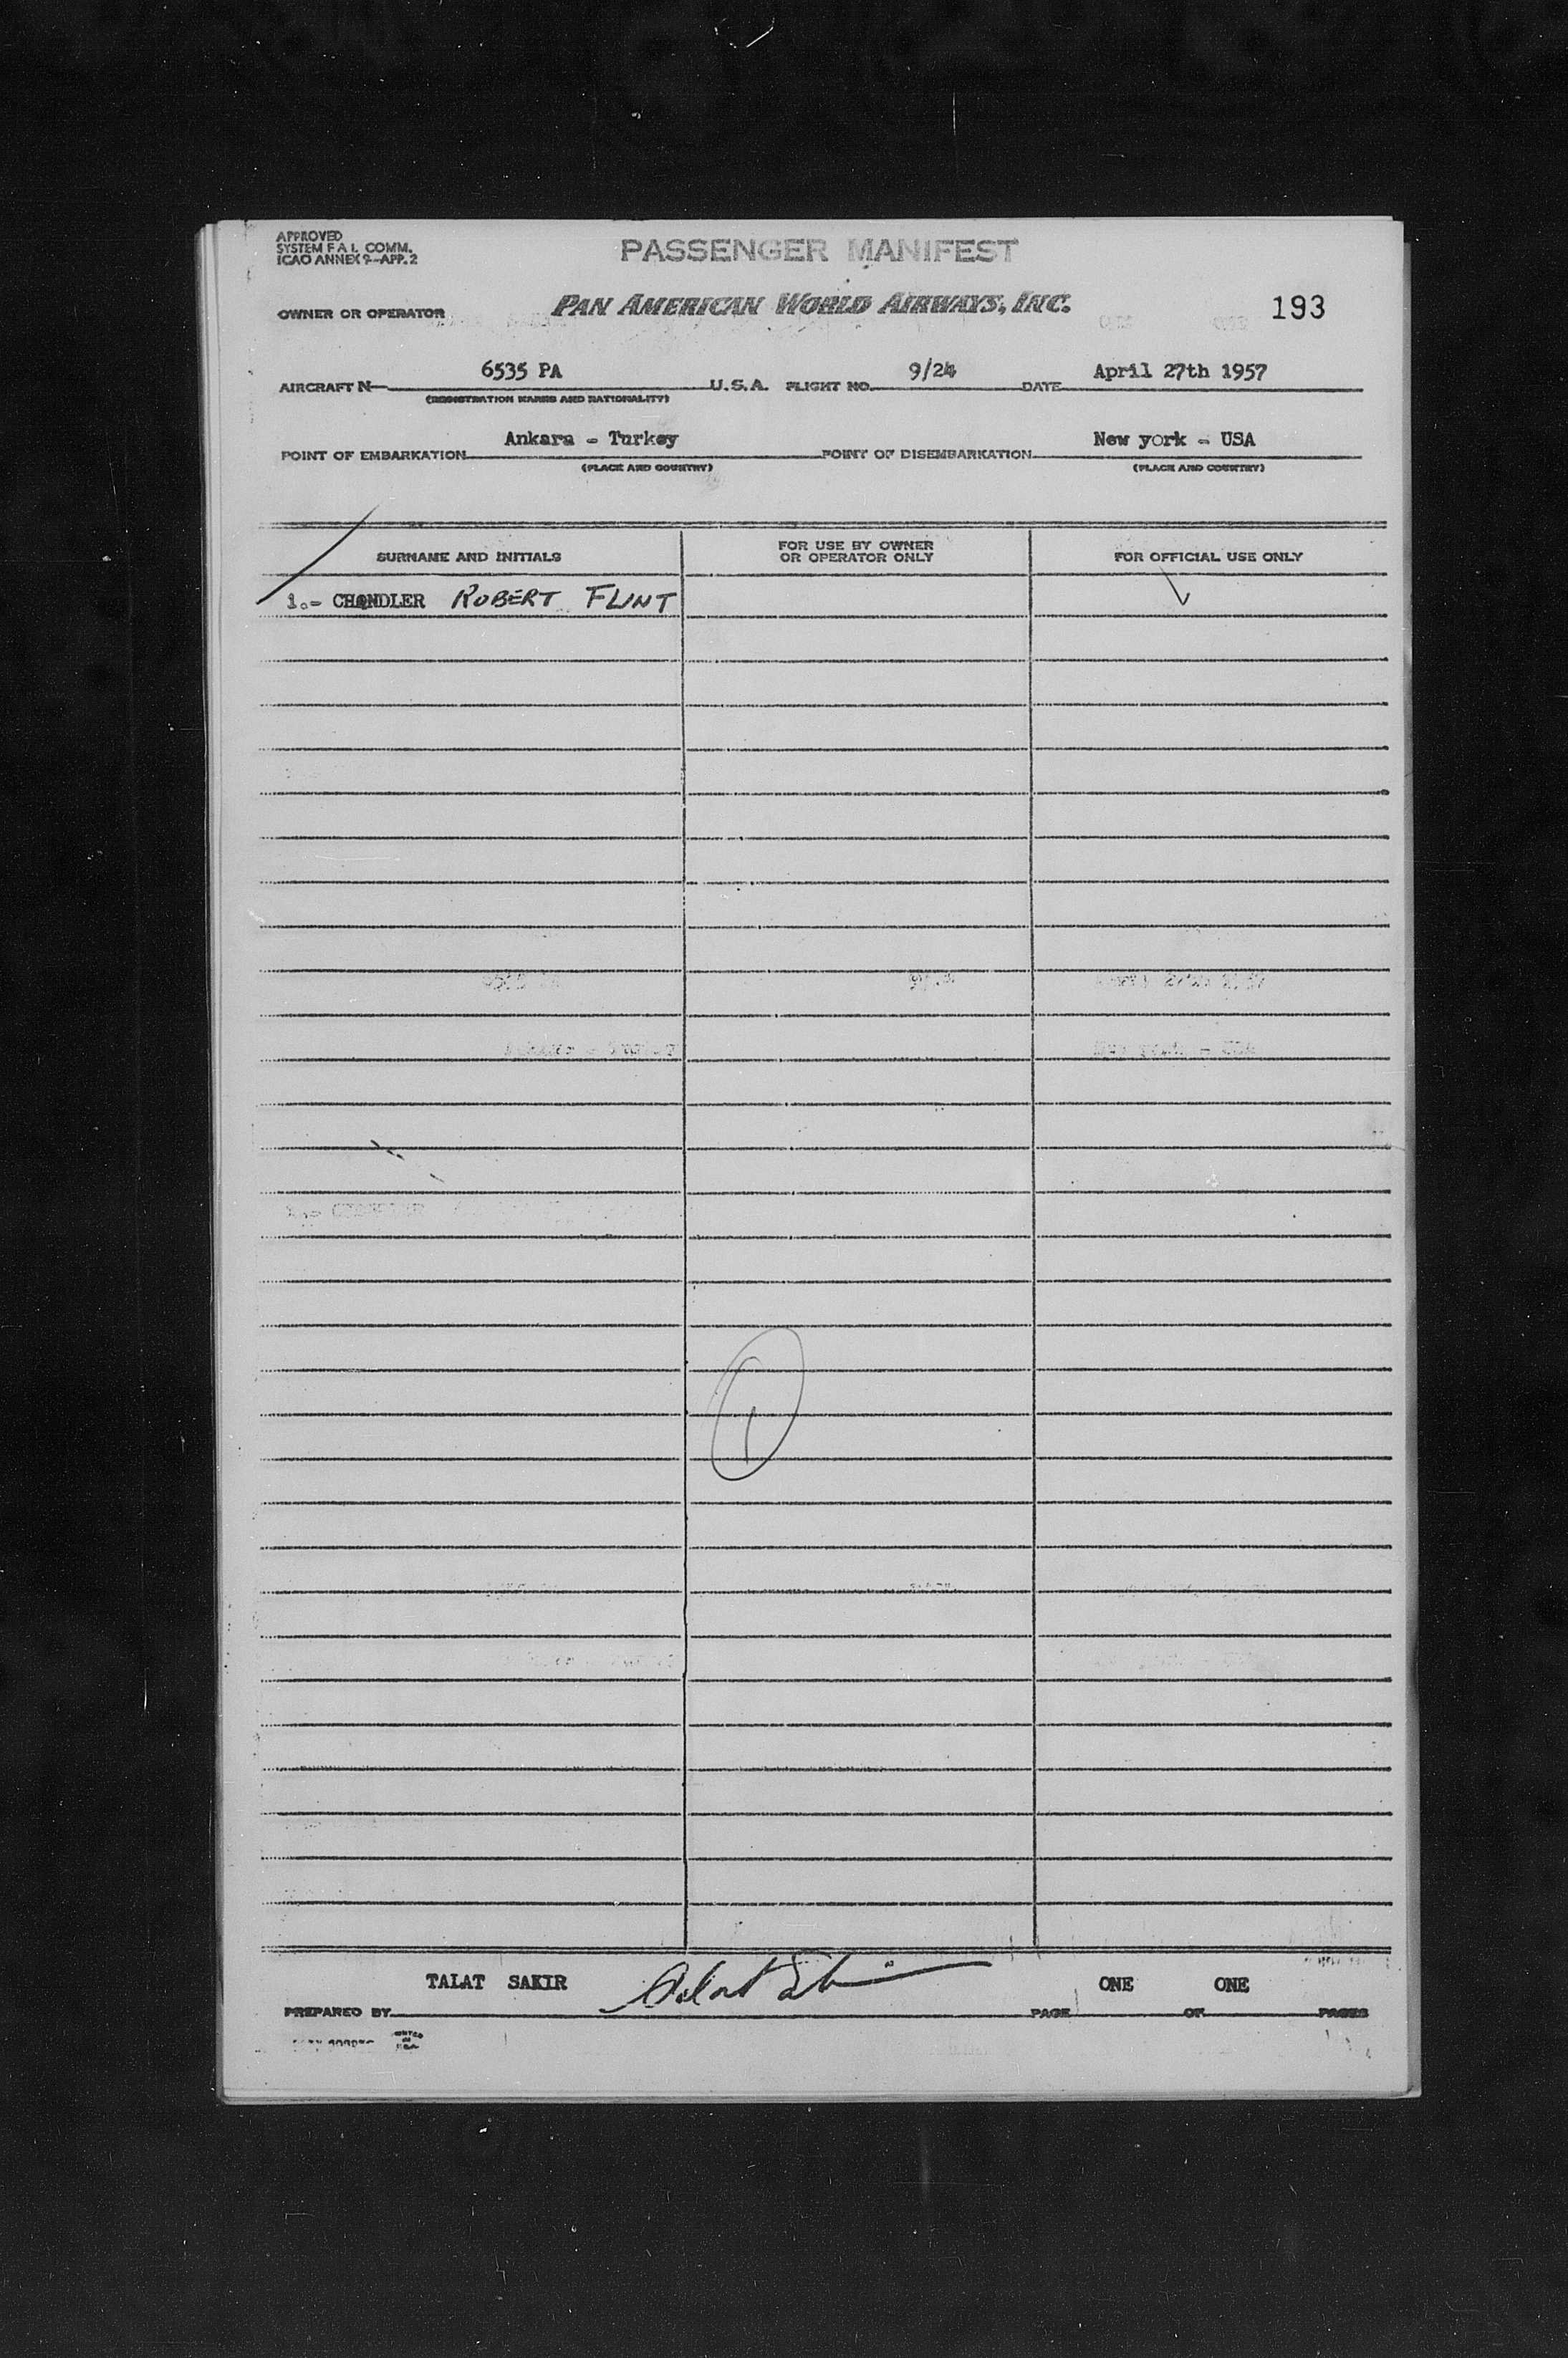 APPROVED
SYSTEM F A L COMM.
ICAO ANNEX 9-APP. 2
PASSENGER MANIFEST
OWNER OR OPERATOR PAN AMERICAN WORLD AIRWAYS, INC. 193
AIRCRAFT N 6535 PA U.S.A. FLIGHT NO. 9/24 DATE April 27th 1957
(REGISTRATION MARKS AND NATIONALITY)
POINT OF EMBARKATION Ankara - Turkey POINT OF DISEMBARKATION New york - USA
(PLACE AND COUNTRY) (PLACE AND COUNTRY)
SURNAME AND INITIALS
FOR USE BY OWNER
OR OPERATOR ONLY
FOR OFFICIAL USE ONLY
1.- CHANDLER ROBERT FLINT
1
PREPARED BY TALAT SAKIR PAGE ONE OF ONE PAGES
PRINTED
IN
USA